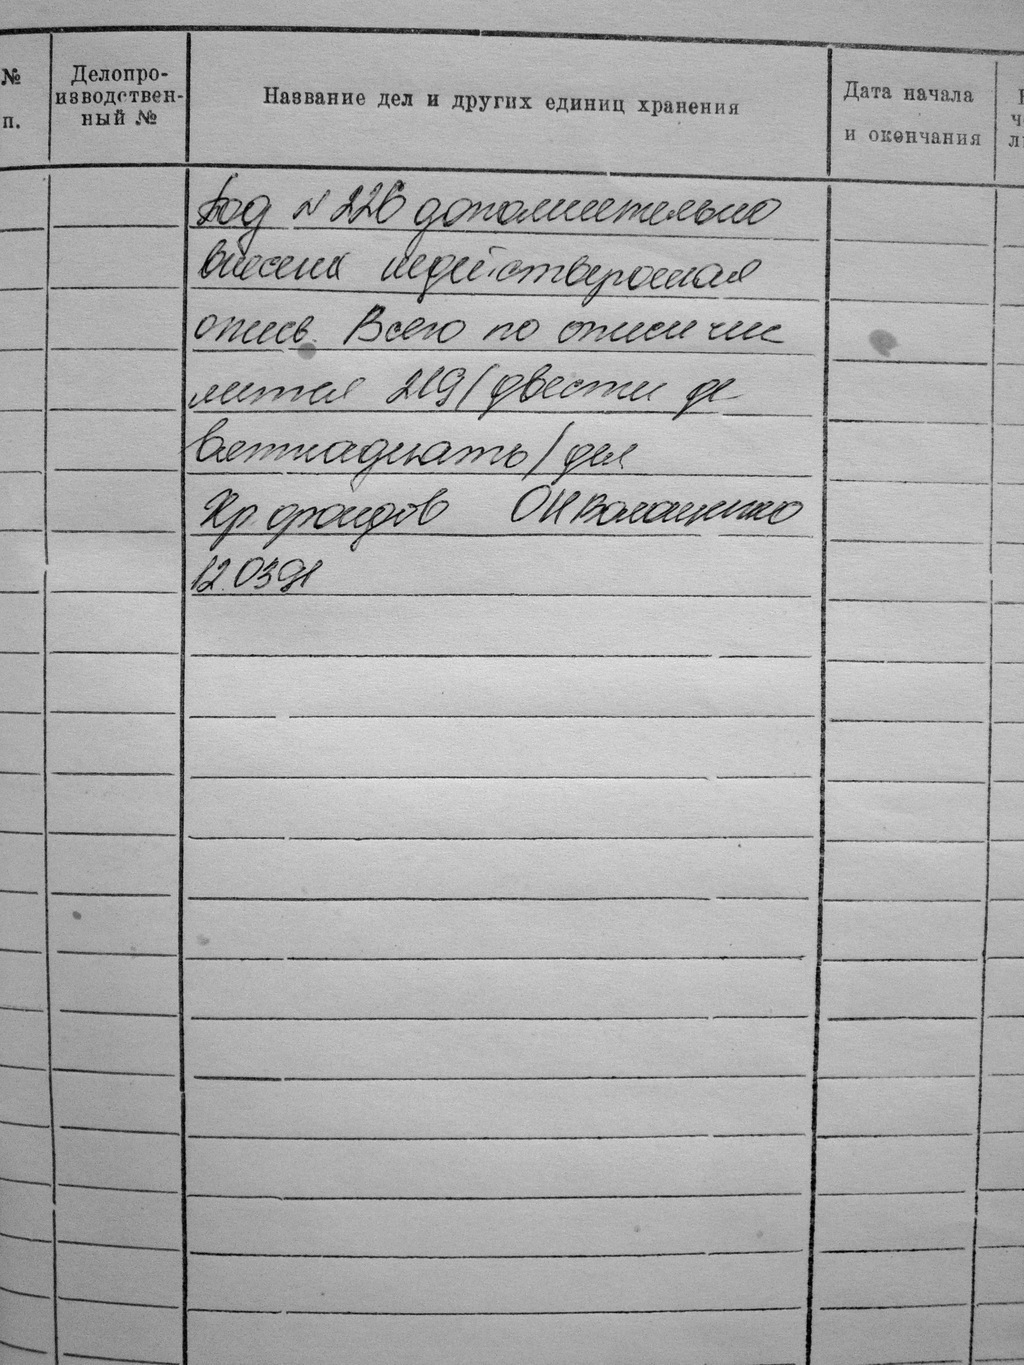 №
п.
Делопро-
изводствен-
ный №
Название дел и других единиц хранения
Дата начала
и окончания
Под № 226 дополнительно
внесена недействующая
опись. Всего по описи чис
лится 219 / двести де
вятнадцать / дел
Хр. фондов
12.03.91